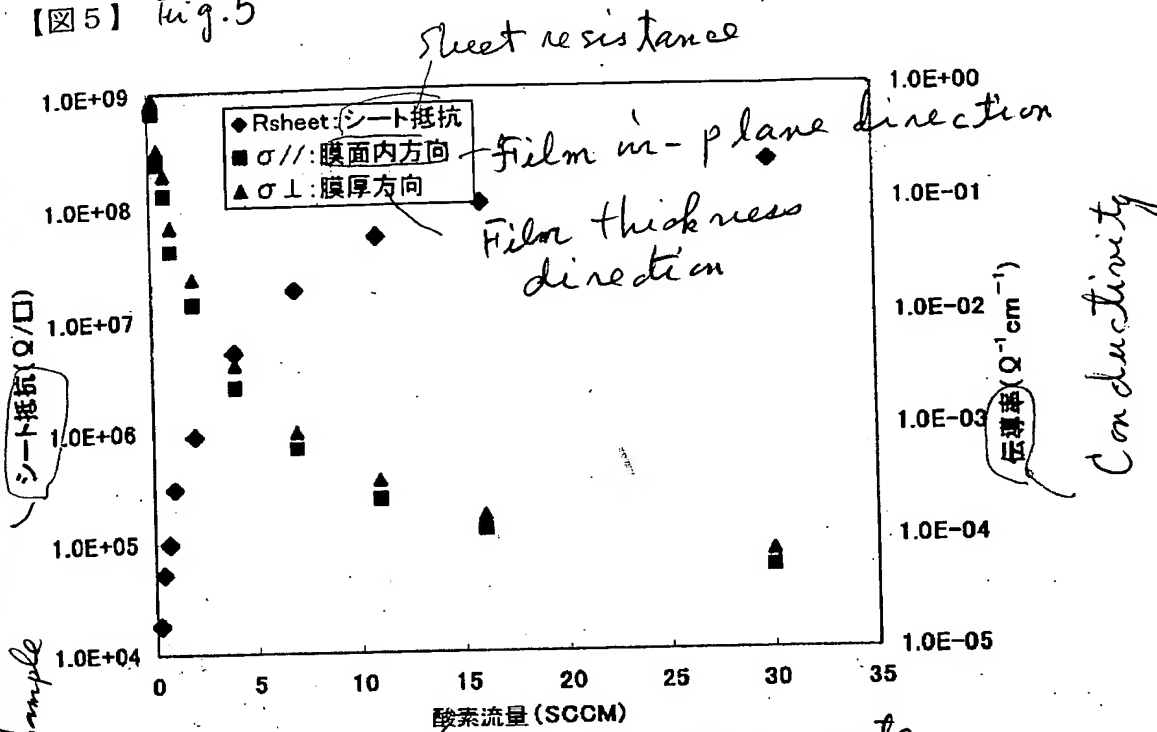 【図5】 Fig.5
Sheet resistance
◆ Rsheet:シート抵抗
■ σ//:膜面内方向
▲ σ⊥:膜厚方向
Film in-plane direction
Film thickness
direction
シート抵抗(Ω/口)
1.0E+09
1.0E+08
1.0E+07
1.0E+06
1.0E+05
1.0E+04
1.0E+00
1.0E-01
1.0E-02
1.0E-03
1.0E-04
1.0E-05
伝導率(Ω⁻¹cm⁻¹)
Conductivity
0 5 10 15 20 25 30 35
酸素流量(SCCM)